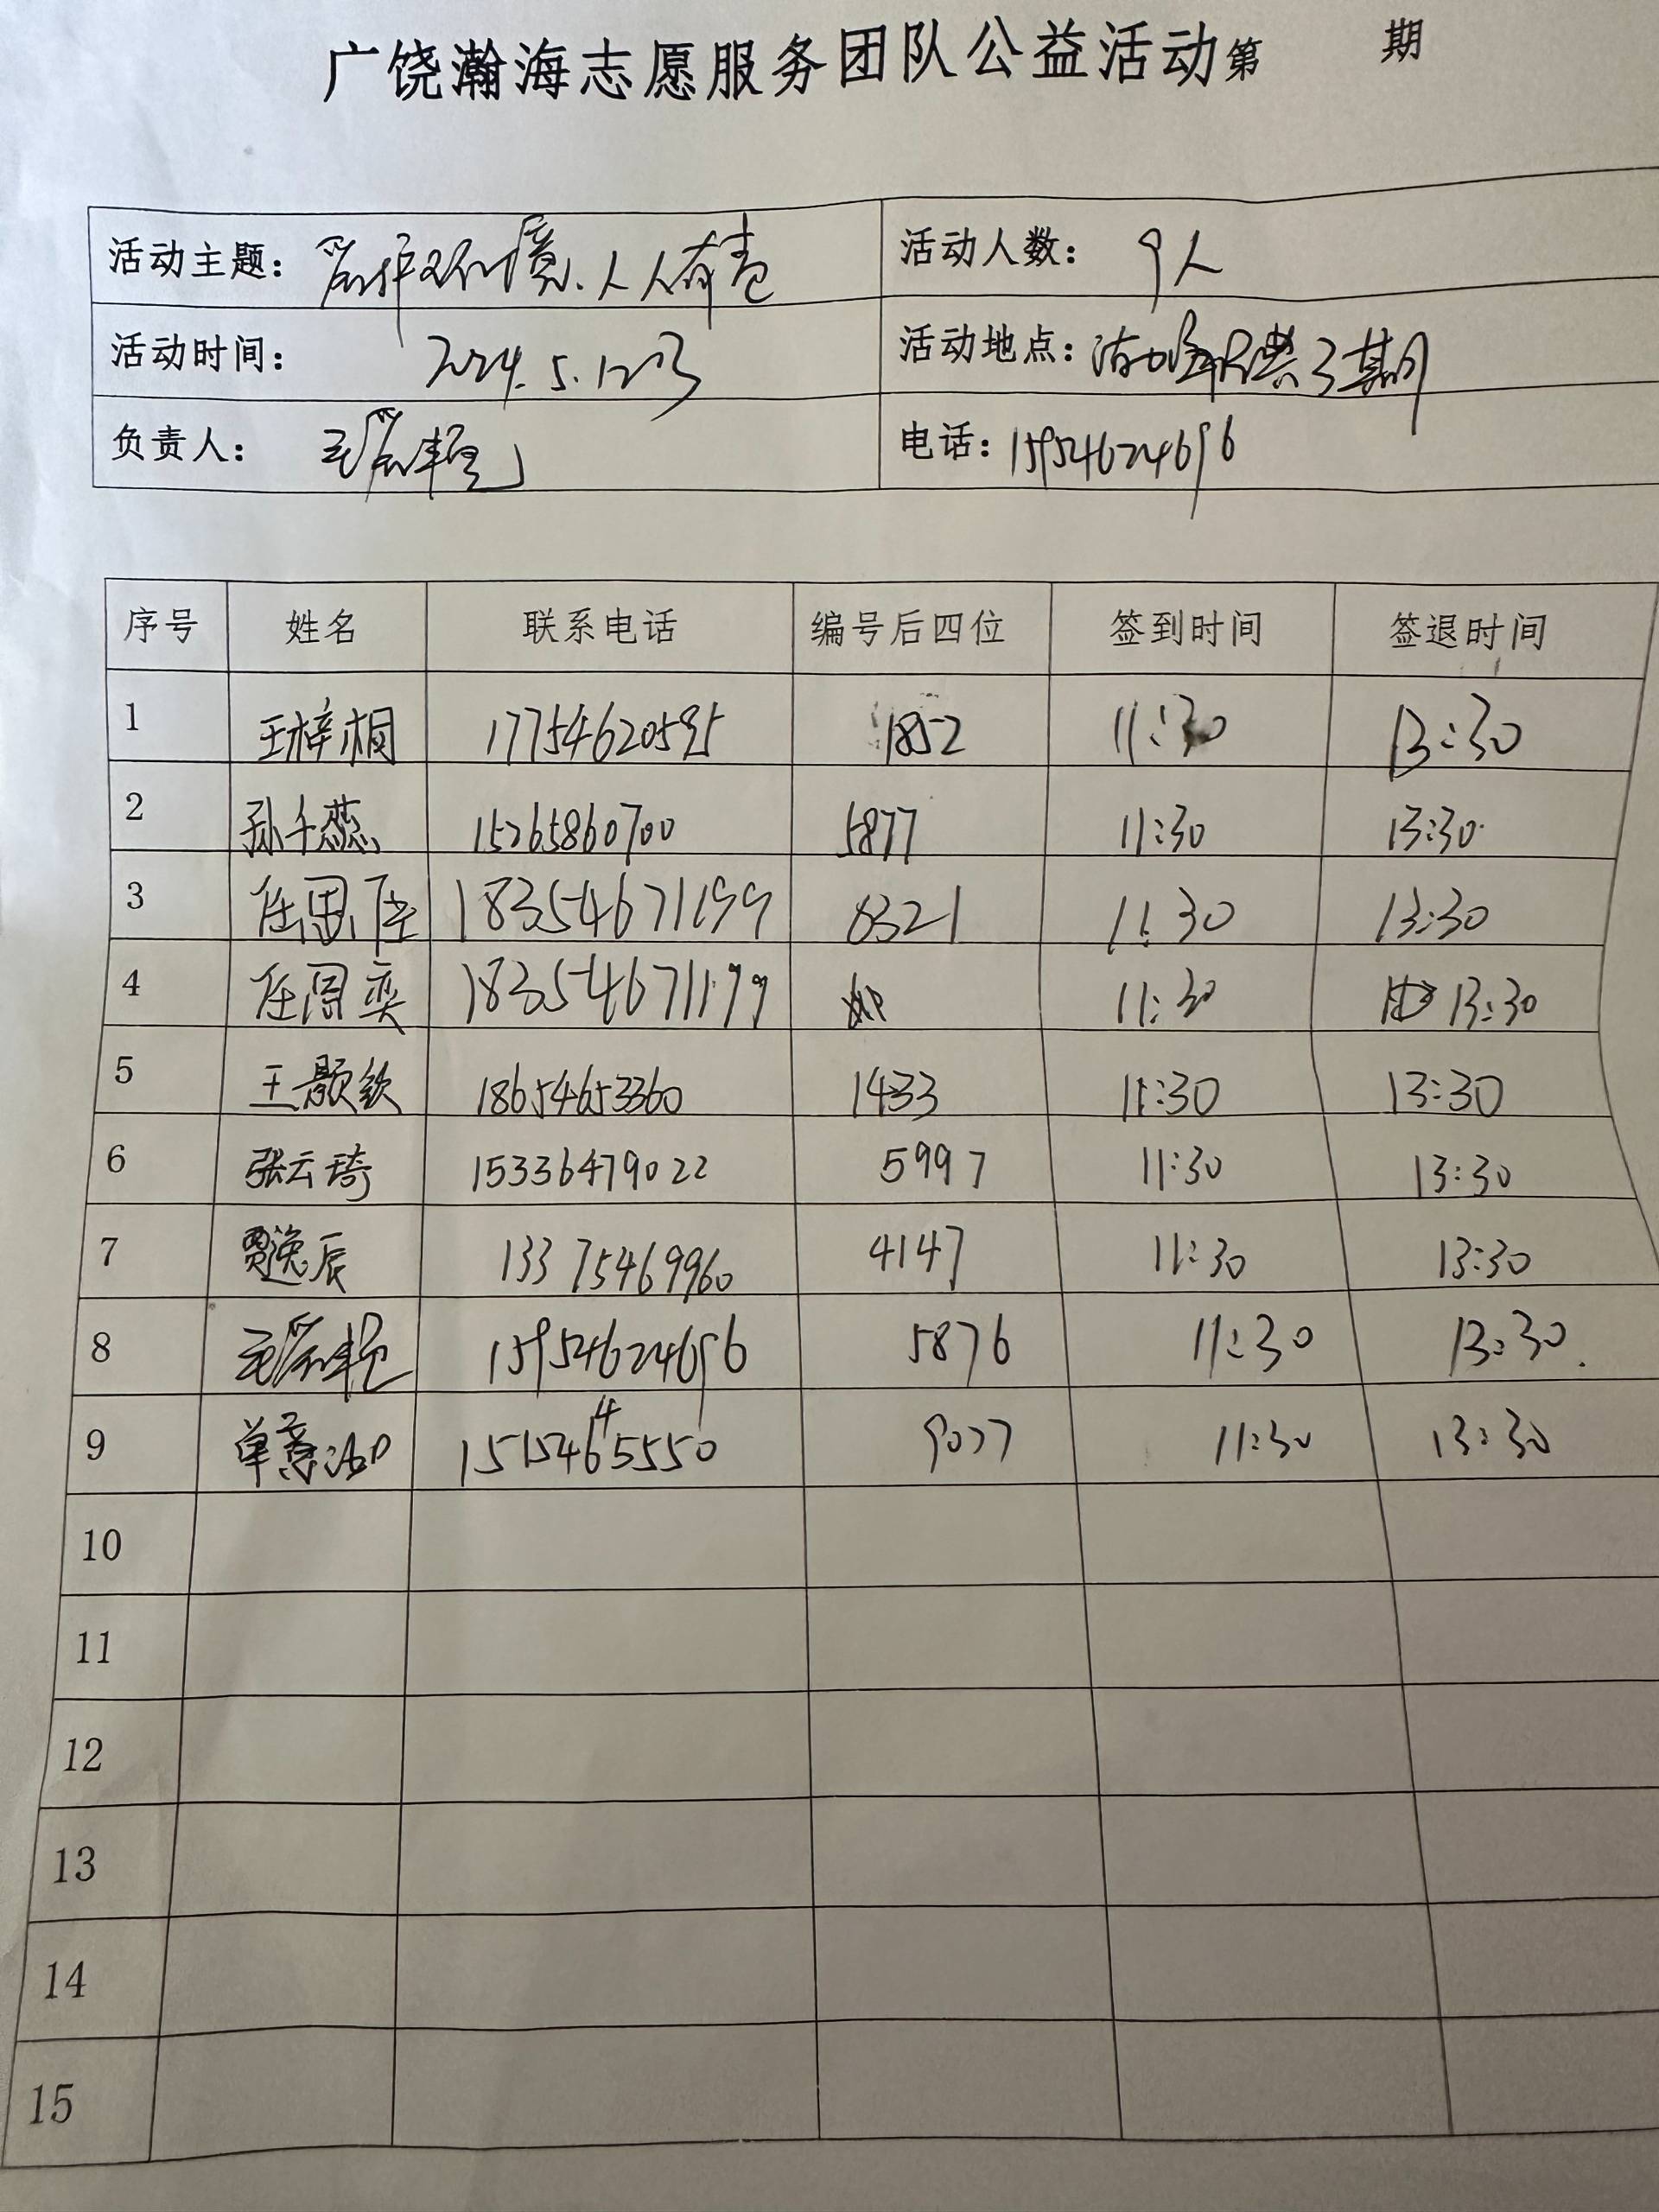 广饶瀚海志愿服务团队公益活动第 期
活动主题: 爱护环境、人人有责 活动人数: 9人
活动时间: 2024.5.12日 活动地点: 3期
负责人: 王爱艳 电话: 15954624696
序号 姓名 联系电话 编号后四位 签到时间 签退时间
1 王梓桐 17754620595 1852 11:30 13:30
2 孙千蕊 15265860700 5877 11:30 13:30
3 任思 18354671199 8321 11:30 13:30
4 任周奕 18354671199 11:30 13:30
5 王颢钦 18654653360 1433 11:30 13:30
6 张云琦 15336479022 5997 11:30 13:30
7 贾逸辰 13375469960 4147 11:30 13:30
8 王爱艳 15954624696 5876 11:30 13:30
9 单 9077 11:30 13:30
10
11
12
13
14
15